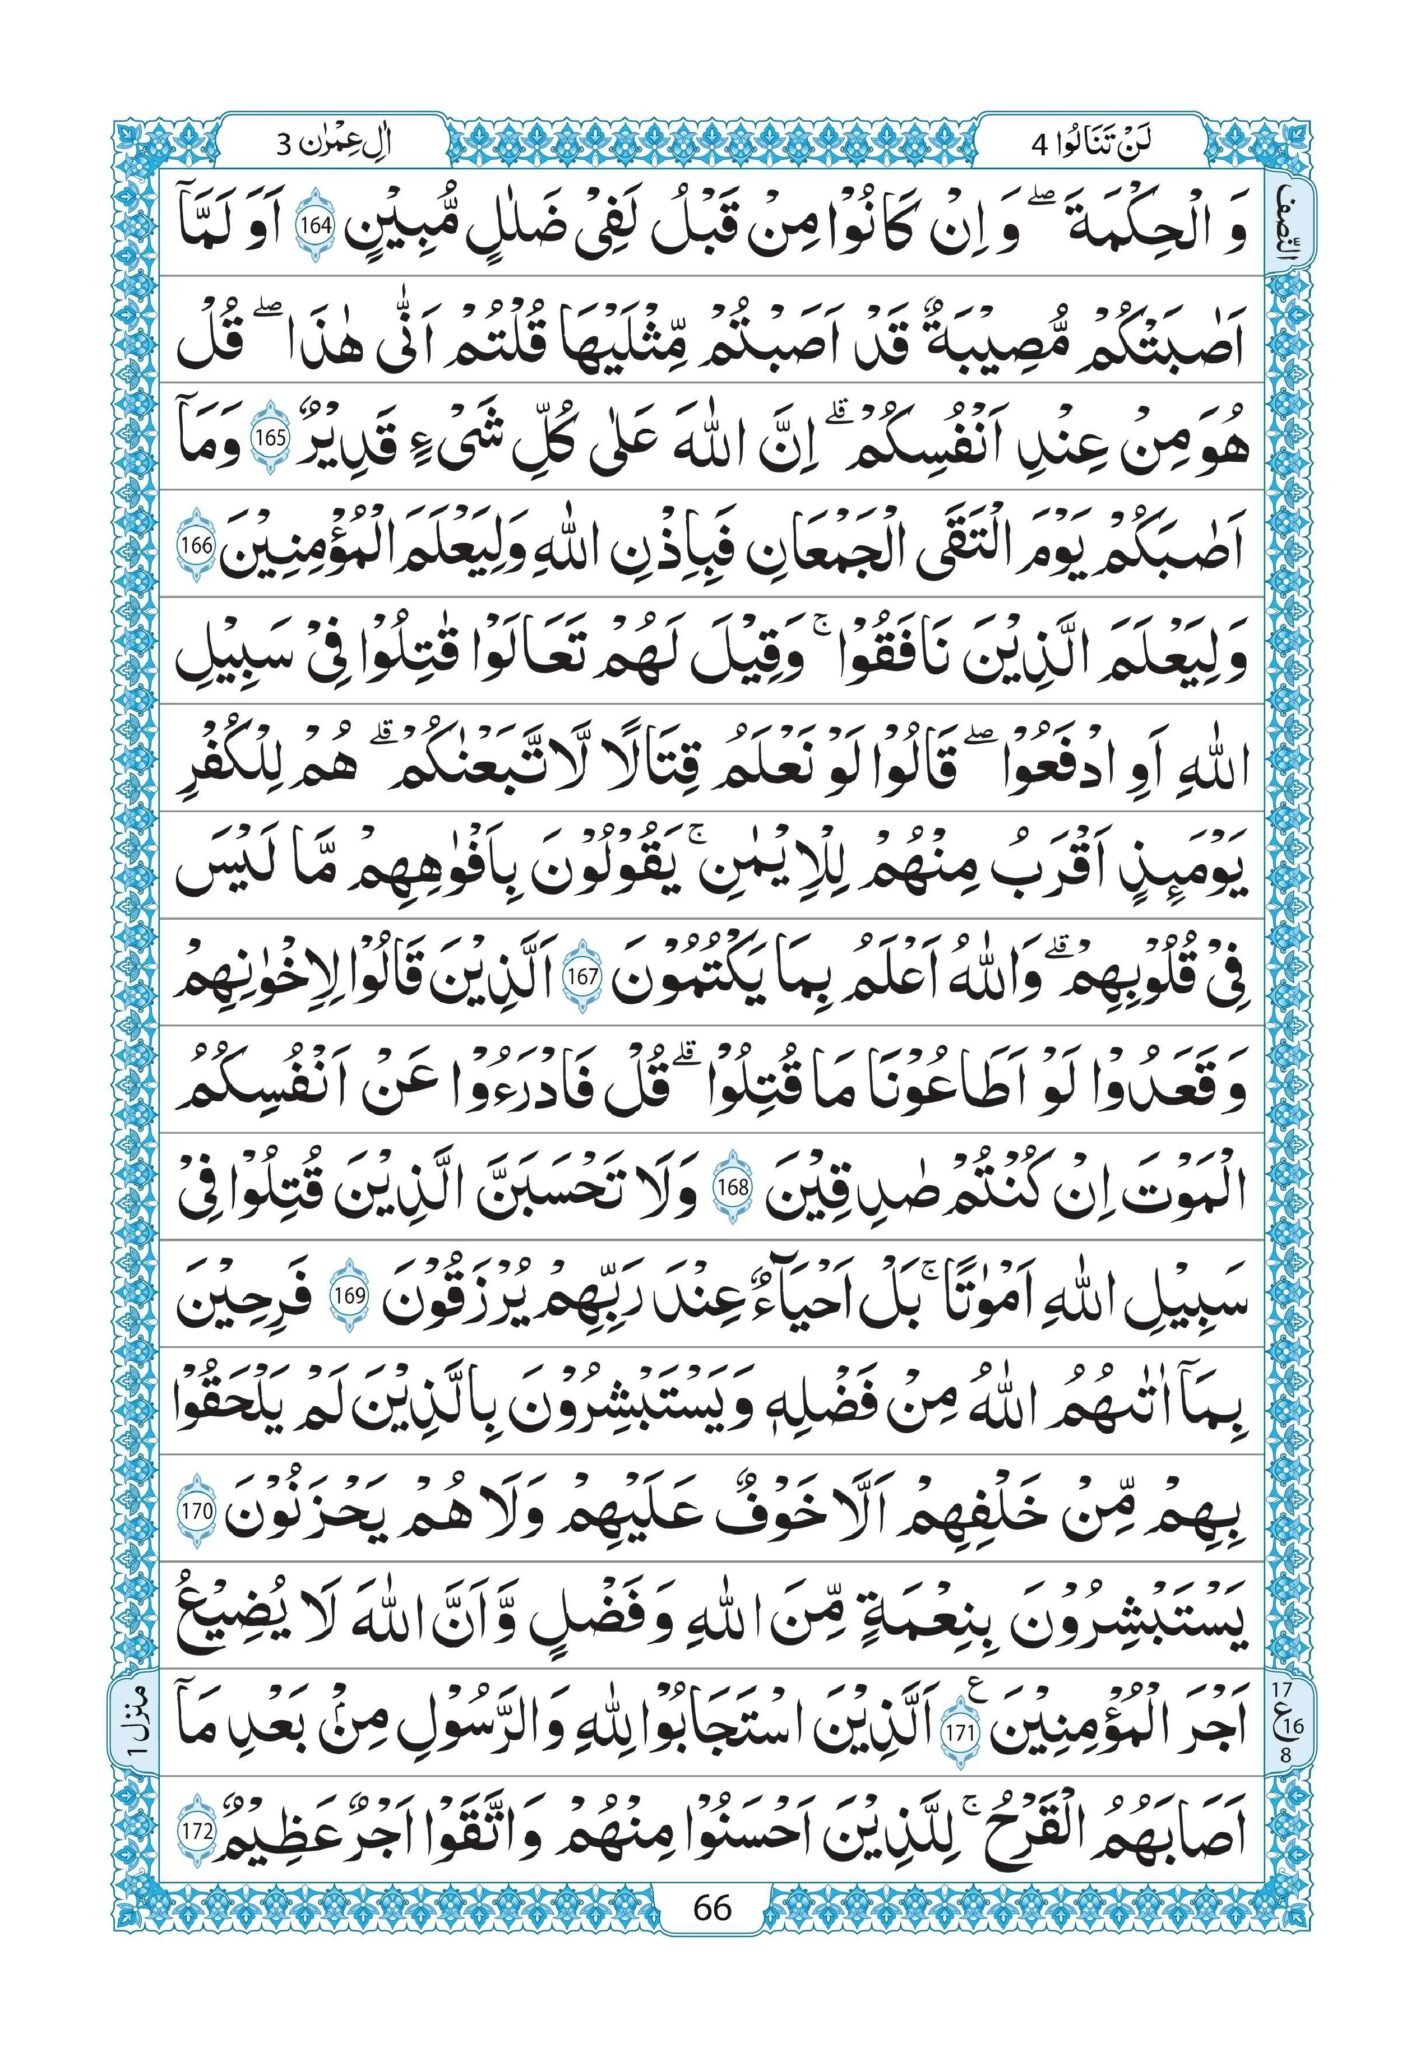 لَنْ تَنَالُوا 4
اٰلِ عِمْرٰن 3
النِّصف
وَ الْحِكْمَةَ ۖ وَ اِنْ كَانُوْا مِنْ قَبْلُ لَفِیْ ضَلٰلٍ مُّبِیْنٍ 164 اَوَ لَمَّاۤ
اَصٰبَتْكُمْ مُّصِیْبَةٌ قَدْ اَصَبْتُمْ مِّثْلَیْهَا قُلْتُمْ اَنّٰی هٰذَا ۖ قُلْ
هُوَ مِنْ عِنْدِ اَنْفُسِكُمْ ۗ اِنَّ اللّٰهَ عَلٰی كُلِّ شَیْءٍ قَدِیْرٌ 165 وَمَاۤ
اَصٰبَكُمْ یَوْمَ الْتَقَی الْجَمْعَانِ فَبِاِذْنِ اللّٰهِ وَلِیَعْلَمَ الْمُؤْمِنِیْنَ 166
وَلِیَعْلَمَ الَّذِیْنَ نَافَقُوْا ۚ وَقِیْلَ لَهُمْ تَعَالَوْا قٰتِلُوْا فِیْ سَبِیْلِ
اللّٰهِ اَوِ ادْفَعُوْا ۖ قَالُوْا لَوْ نَعْلَمُ قِتَالًا لَّا تَّبَعْنٰكُمْ ۗ هُمْ لِلْكُفْرِ
یَوْمَىِٕذٍ اَقْرَبُ مِنْهُمْ لِلْاِیْمٰنِ ۚ یَقُوْلُوْنَ بِاَفْوٰهِهِمْ مَّا لَیْسَ
فِیْ قُلُوْبِهِمْ ۗ وَاللّٰهُ اَعْلَمُ بِمَا یَكْتُمُوْنَ 167 اَلَّذِیْنَ قَالُوْا لِاِخْوٰنِهِمْ
وَ قَعَدُوْا لَوْ اَطَاعُوْنَا مَا قُتِلُوْا ۗ قُلْ فَادْرَءُوْا عَنْ اَنْفُسِكُمُ
الْمَوْتَ اِنْ كُنْتُمْ صٰدِقِیْنَ 168 وَلَا تَحْسَبَنَّ الَّذِیْنَ قُتِلُوْا فِیْ
سَبِیْلِ اللّٰهِ اَمْوٰتًا ۚ بَلْ اَحْیَآءٌ عِنْدَ رَبِّهِمْ یُرْزَقُوْنَ 169 فَرِحِیْنَ
بِمَاۤ اٰتٰىهُمُ اللّٰهُ مِنْ فَضْلِهٖ وَیَسْتَبْشِرُوْنَ بِالَّذِیْنَ لَمْ یَلْحَقُوْا
بِهِمْ مِّنْ خَلْفِهِمْ اَلَّا خَوْفٌ عَلَیْهِمْ وَلَا هُمْ یَحْزَنُوْنَ 170
یَسْتَبْشِرُوْنَ بِنِعْمَةٍ مِّنَ اللّٰهِ وَ فَضْلٍ وَّاَنَّ اللّٰهَ لَا یُضِیْعُ
اَجْرَ الْمُؤْمِنِیْنَ ع 171 اَلَّذِیْنَ اسْتَجَابُوْا لِلّٰهِ وَالرَّسُوْلِ مِنْۢ بَعْدِ مَاۤ
17
ع 16
8
منزل 1
اَصَابَهُمُ الْقَرْحُ ۚ لِلَّذِیْنَ اَحْسَنُوْا مِنْهُمْ وَاتَّقَوْا اَجْرٌ عَظِیْمٌ 172
66